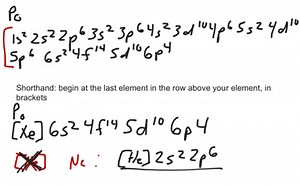 Po
1s² 2s² 2p⁶ 3s² 3p⁶ 4s² 3d¹⁰ 4p⁶ 5s² 4d¹⁰
5p⁶ 6s² 4f¹⁴ 5d¹⁰ 6p⁴
Shorthand: begin at the last element in the row above your element, in
brackets
Po
[Xe] 6s² 4f¹⁴ 5d¹⁰ 6p⁴
Ne: [He] 2s² 2p⁶